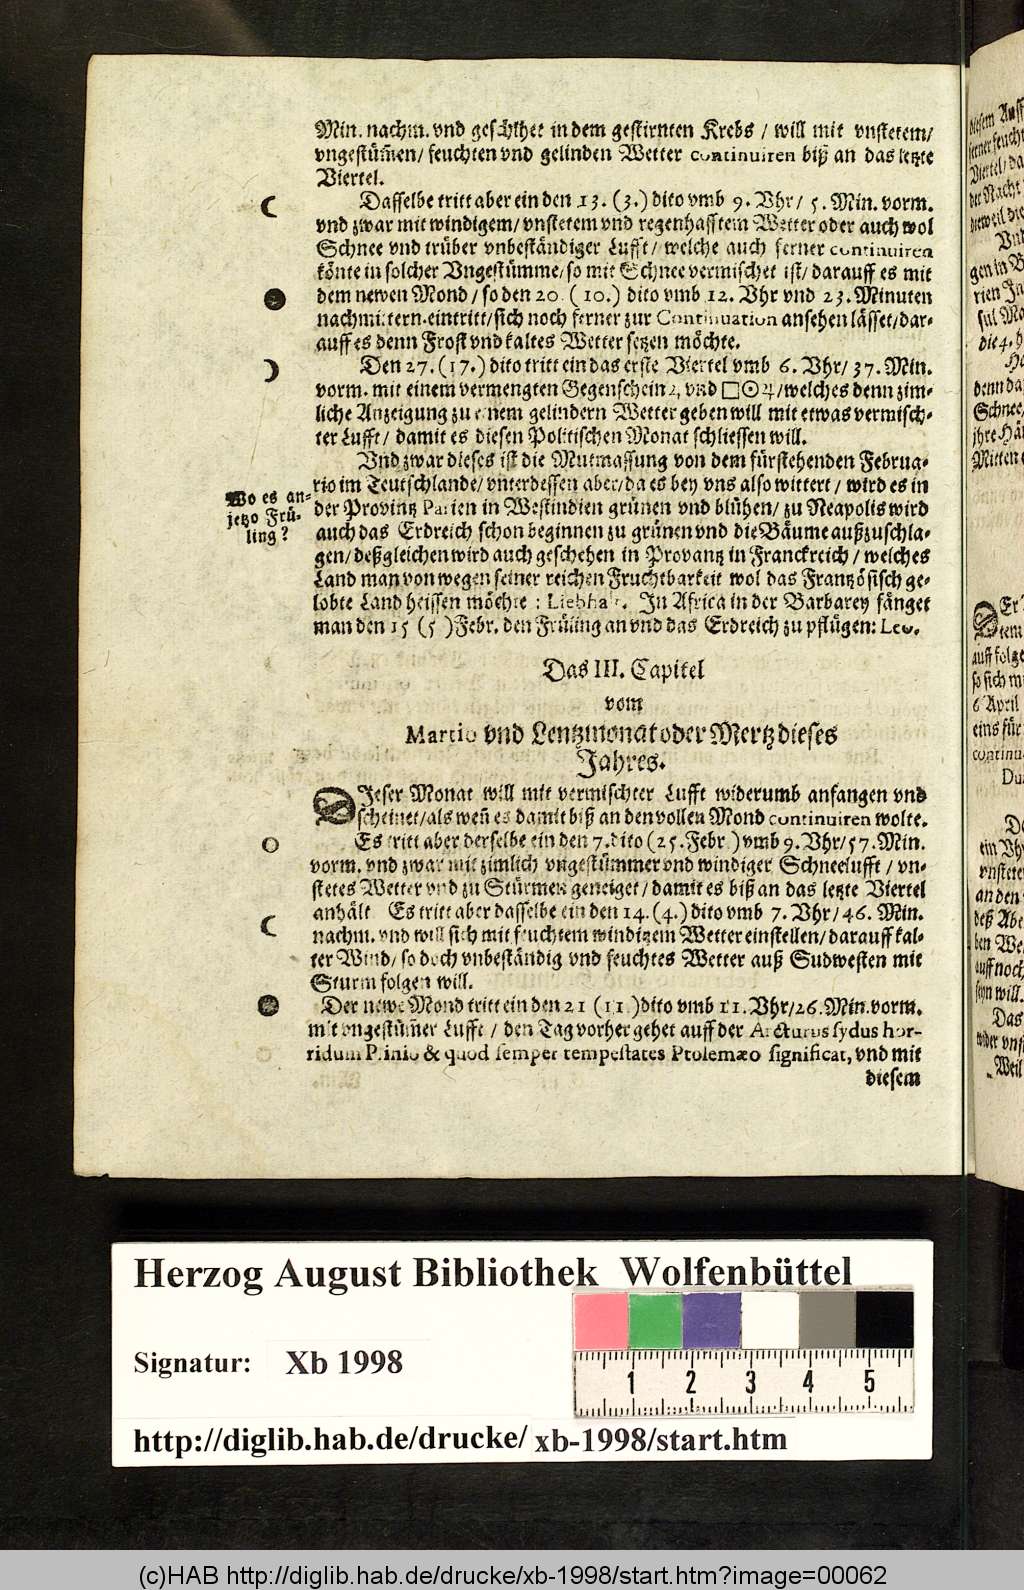 Min. nachm. vnd geschihet in dem gestirnten Krebs / will mit vnstetem/
vngestüm̃en/ feuchten vnd gelinden Wetter continuiren biß an das letzte
Viertel.
Dasselbe tritt aber ein den 13. (3.) dito vmb 9. Vhr/ 5. Min. vorm.
vnd zwar mit windigem/ vnstetem vnd regenhafftem Wetter oder auch wol
Schnee vnd trüber vnbeständiger Lufft/ welche auch ferner continuiren
könte in solcher Vngestümme/ so mit Schnee vermischet ist/ darauff es mit
dem newen Mond / so den 20. (10.) dito vmb 12. Vhr vnd 23. Minuten
nachmittern. eintritt/ sich noch ferner zur Continuation ansehen lässet/ dar-
auff es denn Frost vnd kaltes Wetter setzen möchte.
Den 27. (17.) dito tritt ein das erste Viertel vmb 6. Vhr/ 37. Min.
vorm. mit einem vermengten Gegenschein ♃ vnd □☉♃/ welches denn zim-
liche Anzeigung zu einem gelindern Wetter geben will mit etwas vermisch-
ter Lufft/ damit es diesen Politischen Monat schliessen will.
Vnd zwar dieses ist die Mutmassung von dem fürstehenden Februa-
rio im Teutschlande/ vnterdessen aber/ da es bey vns also wittert / wird es in
Wo es an-
jetzo Frü-
ling?
der Provintz Parien in Westindien grünen vnd blühen/ zu Neapolis wird
auch das Erdreich schon beginnen zu grünen vnd die Bäume außzuschla-
gen/ deßgleichen wird auch geschehen in Provantz in Franckreich / welches
Land man von wegen seiner reichen Fruchtbarkeit wol das Frantzösisch ge-
lobte Land heissen möchte : Liebhalt. In Africa in der Barbarey fänget
man den 15 (5) Febr. den Früling an vnd das Erdreich zu pflügen: Leo.
Das III. Capitel
vom
Martio vnd Lentzmonat oder Mertz dieses
Jahres.
DIeser Monat will mit vermischter Lufft widerumb anfangen vnd
scheinet/ als weñ es damit biß an den vollen Mond continuiren wolte.
Es tritt aber derselbe ein den 7. dito (25. Febr.) vmb 9. Vhr/ 57. Min.
vorm. vnd zwar mit zimlich vngestümmer vnd windiger Schneelufft / vn-
stetes Wetter vnd zu Stürmen geneiget/ damit es biß an das letzte Viertel
anhält Es tritt aber dasselbe ein den 14. (4.) dito vmb 7. Vhr/ 46. Min.
nachm. vnd will sich mit feuchtem windigem Wetter einstellen/ darauff kal-
ter Wind/ so doch vnbeständig vnd feuchtes Wetter auß Sudwesten mit
Sturm folgen will.
Der newe Mond tritt ein den 21 (11.) dito vmb 11. Vhr/ 26. Min. vorm.
mit vngestüm̃er Lufft / den Tag vorher gehet auff der Arcturus sydus hor-
ridum Plinio & quod semper tempestates Ptolemæo significat, vnd mit
diesem
Herzog August Bibliothek Wolfenbüttel
Signatur: Xb 1998
1 2 3 4 5
http://diglib.hab.de/drucke/ xb-1998/start.htm
(c)HAB http://diglib.hab.de/drucke/xb-1998/start.htm?image=00062